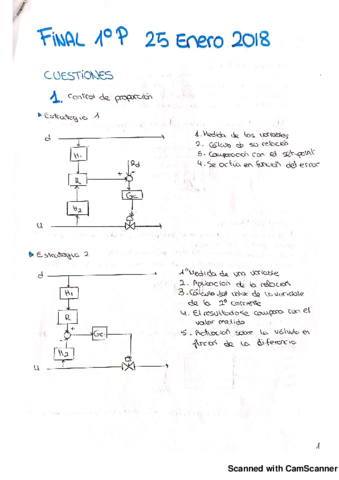 FiNAL 1º P 25 Enero 2018
CUESTIONES
1. Control de proporción
Estrategia 1
d
H1
R
Rd
+
-
Gc
H2
u
1. Medida de las variables
2. Cálculo de su relación
3. Comparación con el set-point
4. Se actúa en función del error
Estrategia 2
d
H1
R
+
-
Gc
H2
u
1º Medida de una variable
2. Aplicación de la relación
3. Cálculo del valor de la variable
de la 2º corriente
4. El resultado se compara con el
valor medido
5. Actuación sobre la válvula en
función de la diferencia
1
Scanned with CamScanner